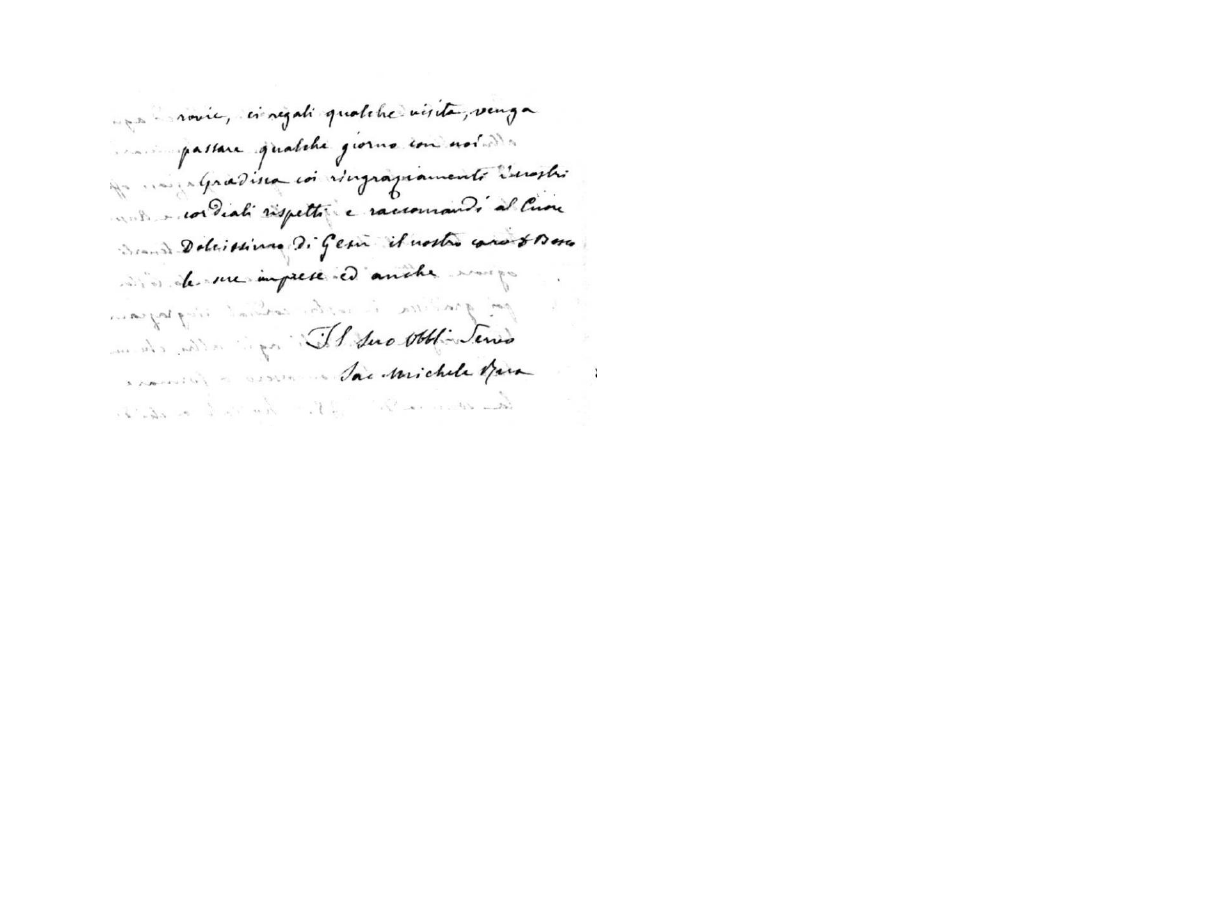 rovie, ci regali qualche visita, venga
passare qualche giorno con noi
Gradisca coi ringraziamenti i nostri
cordiali rispetti e raccomandi al Cuore
Dolcissimo di Gesù il nostro caro D Bosco
le sue imprese ed anche
Il suo Obbl. Servo
Sac Michele Rua